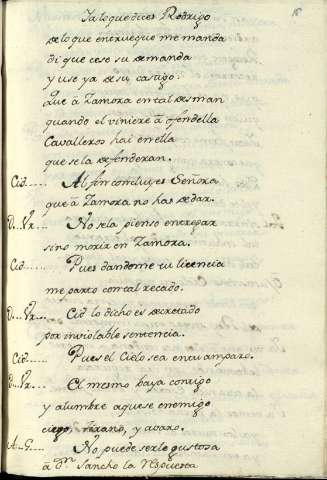 15
Ia loque dices Rodrigo
de lo que entrueque me manda
di que cese su demanda
y use ya de su castigo.
Que â Zamora en tal desman
quando el viniere â ofendella
Cavalleros hai en ella
que se la defenderan.
Cid..... Al fin concluyes Señora
que â Zamora no has de dar.
D...Vr... No se la pienso entregar
sino morir en Zamora.
Cid..... Pues dandome tu licencia
me parto con tal recado.
D...Vr... Cid lo dicho es decretado
por inviolable sentencia.
Cid..... Pues el Cielo sea en tu amparo.
D...Vr... El mesmo baya contigo
y alumbre aquese enemigo
ciego, tirano, y avaro.
A...G.... No puede serle gustosa
â Dn. Sancho la Respuesta